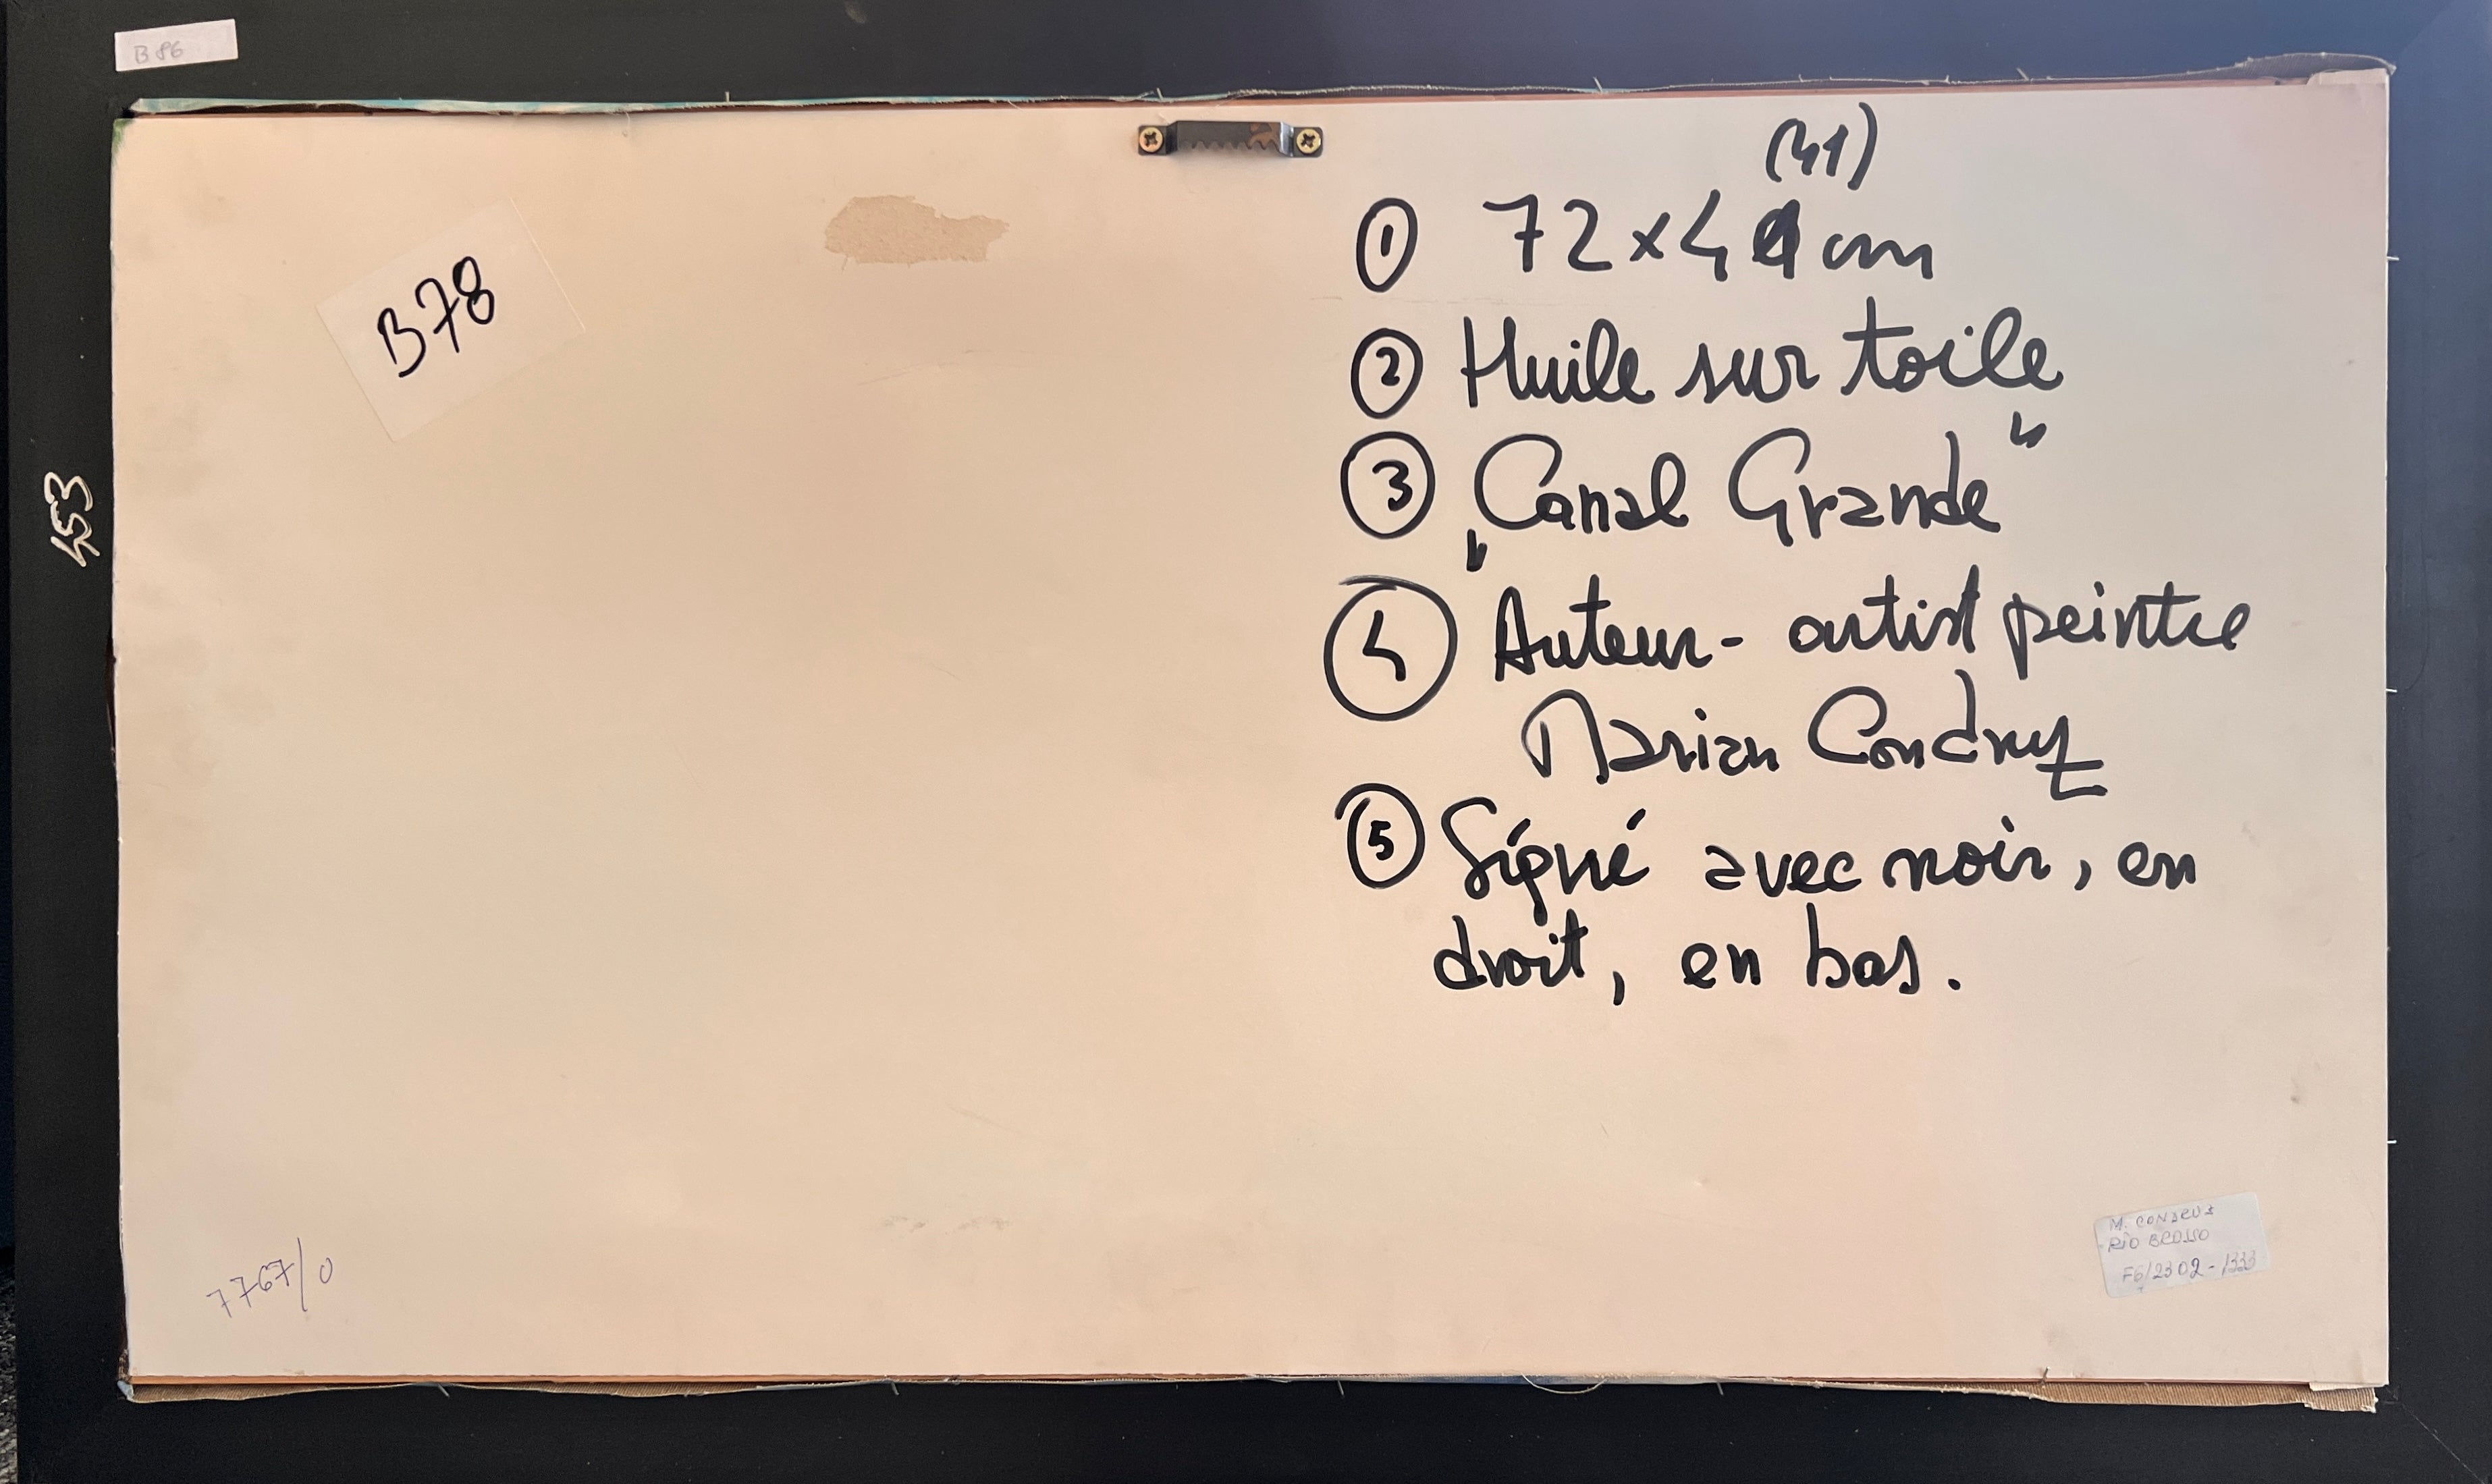 B 86
B78
453
(41)
① 72x41 cm
② Huile sur toile
③ „Canal Grande"
④ Auteur - artist peintre
Marian Condruz
⑤ Signé avec noir, en
droit, en bas.
7767/0
M. CONDRUZ
RIO
F6/2302-1333